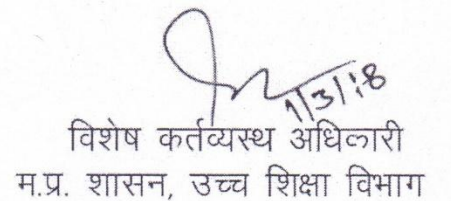 1/3/18
विशेष कर्तव्यस्थ अधिकारी
म.प्र. शासन, उच्च शिक्षा विभाग